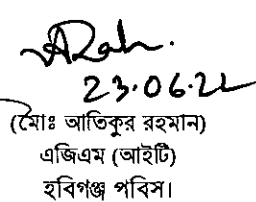 23.06.22
(মোঃ আতিকুর রহমান)
এজিএম (আইটি)
হবিগঞ্জ পবিস।